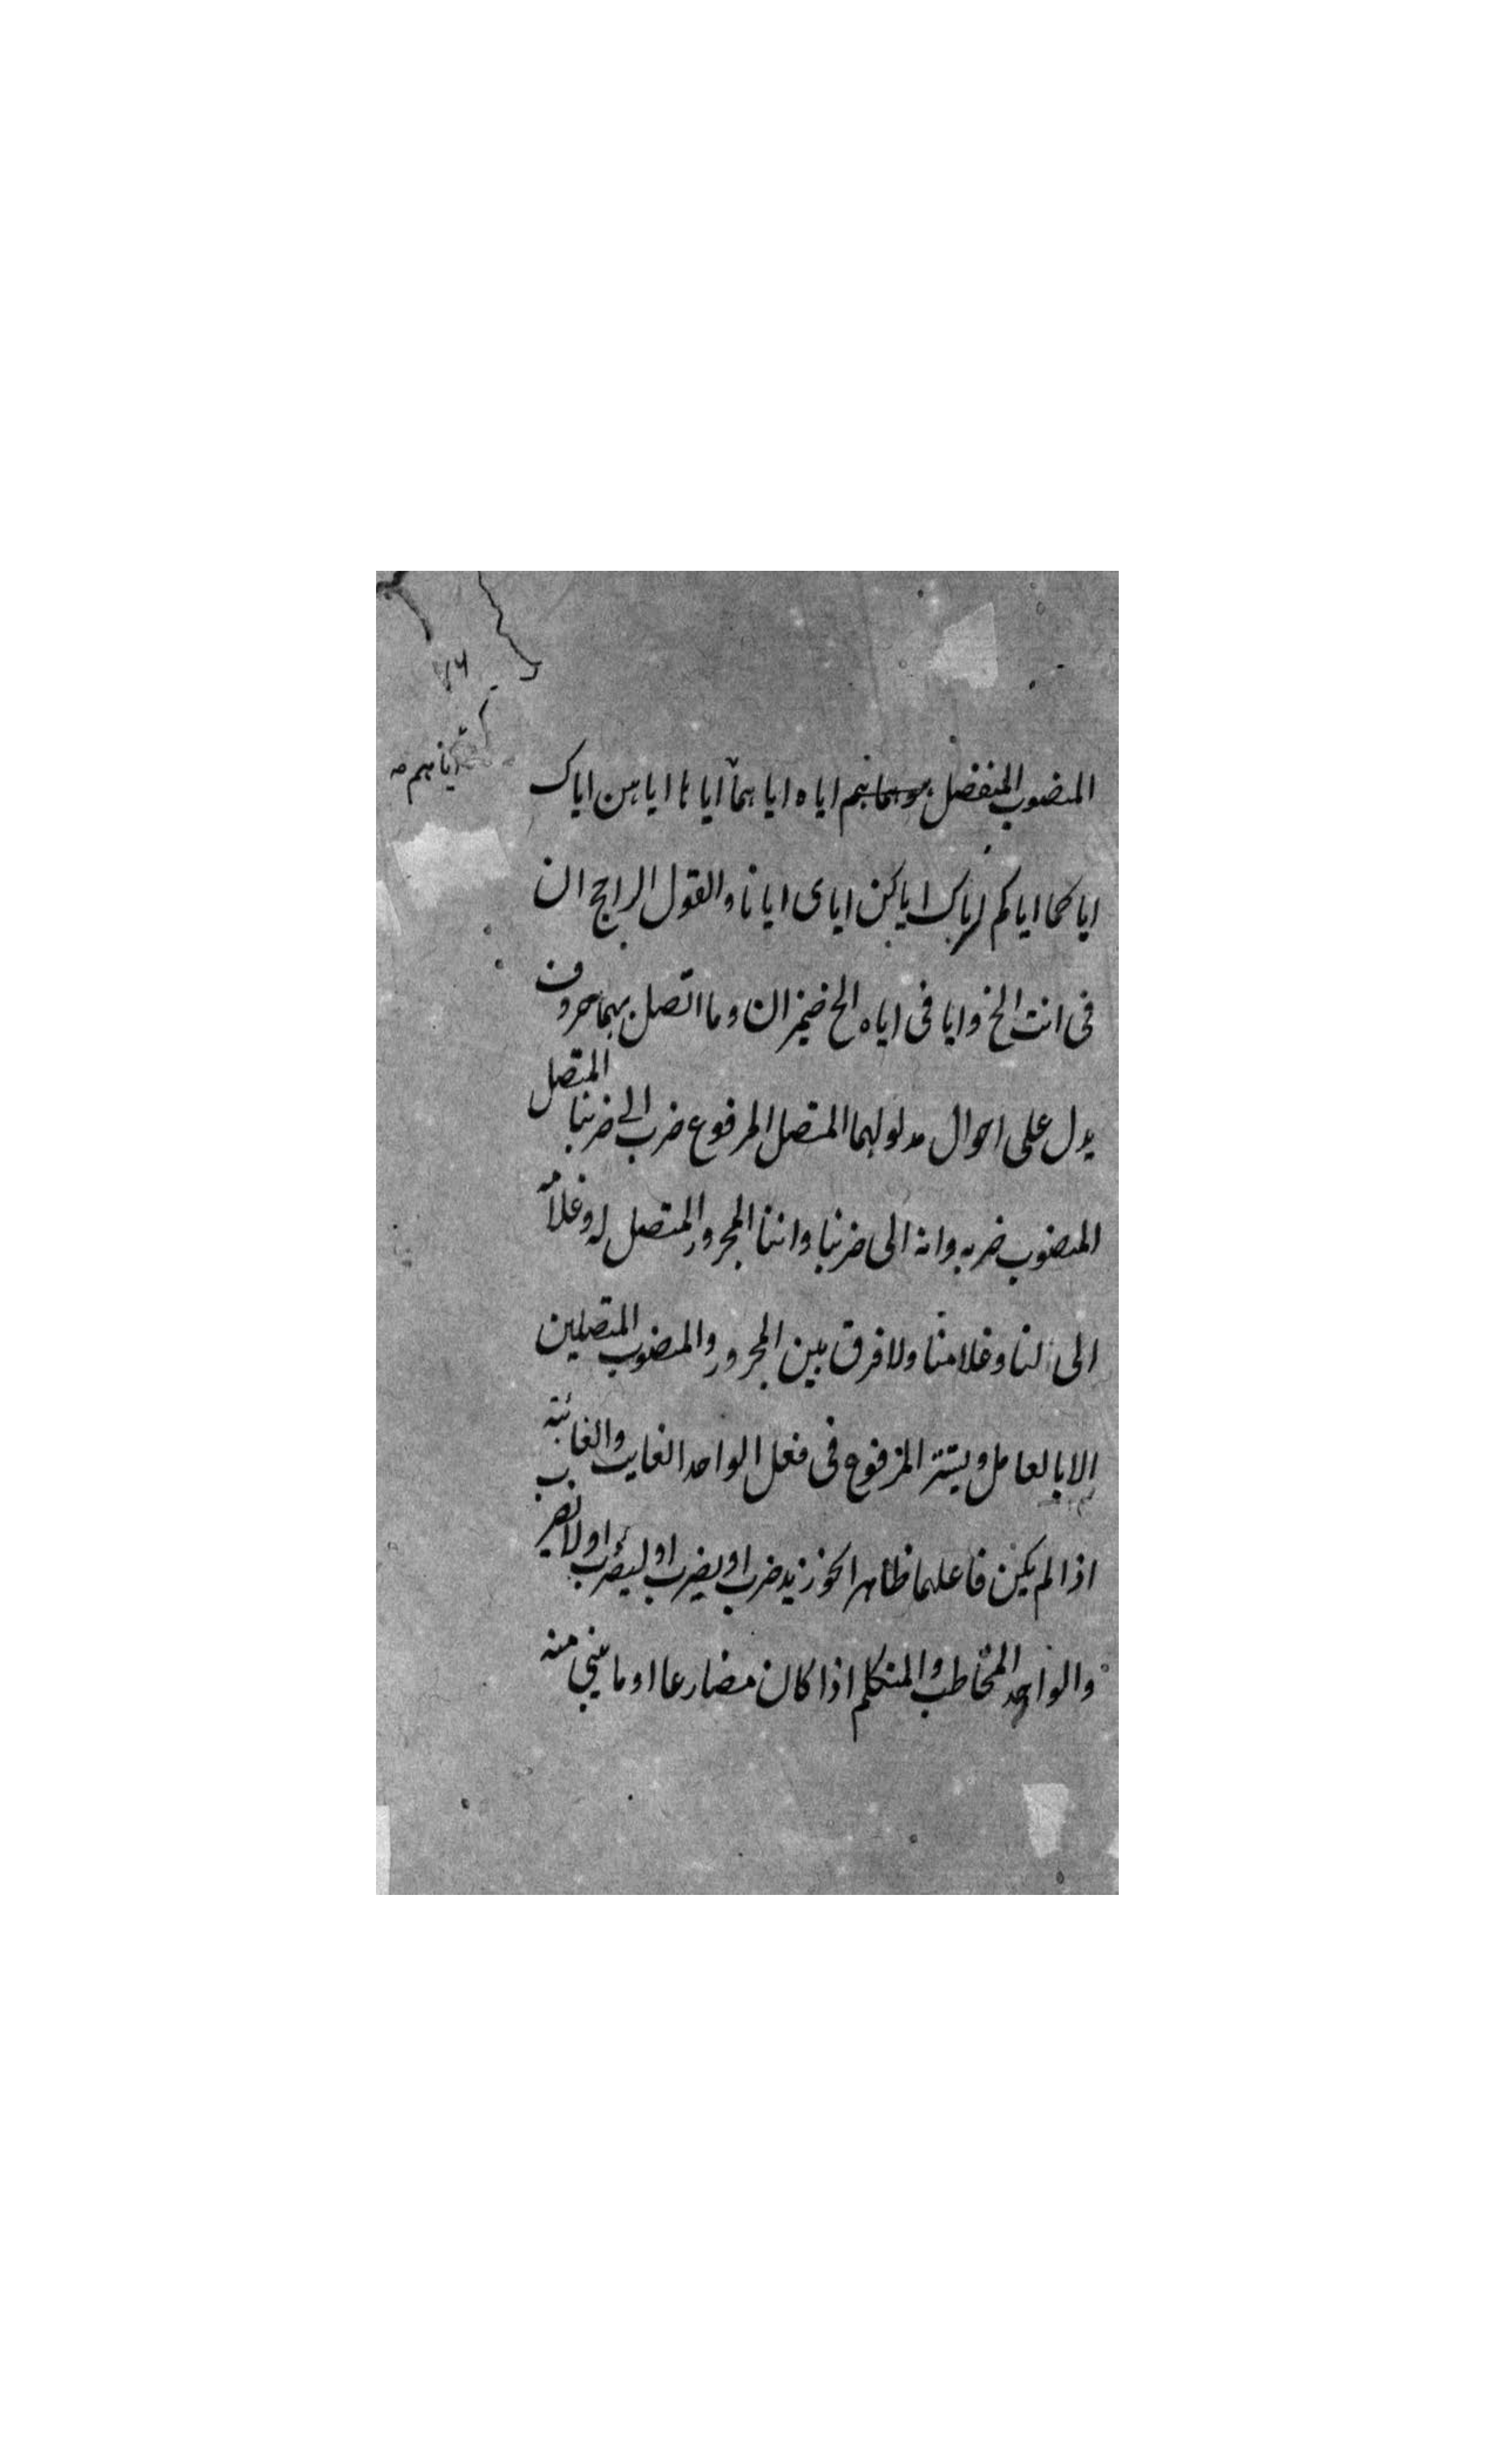 ٧٦
اياهم صح
المنصوب المنفصل هو هما هم اياه اياهما اياها اياهن اياك
اياكما اياكم اياك اياكن اياى ايانا والقول الراجح ان
فى انت الخ وايا فى اياه الخ ضميران وما اتصل بهما حروف
يدل على احوال مدلولهما المتصل المرفوع ضرب الى ضربنا المتصل
المنصوب ضربه وانه الى ضربنا واننا المجرور المتصل له وغلامه
الى لنا وغلامنا ولا فرق بين المجرور والمنصوب المتصلين
الا بالعامل ويستتر المرفوع فى فعل الواحد الغايب والغائبة
اذا لم يكن فاعلهما ظاهرا نحو زيد ضرب او يضرب او ليضرب او لا يضرب
والواحد المخاطب والمتكلم اذا كان مضارعا او ما يبنى منه